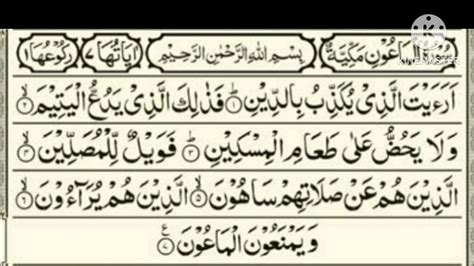 سُوْرَةُ الْمَاعُوْنِ مَكِّيَّةٌ بِسْمِ اللّٰهِ الرَّحْمٰنِ الرَّحِيْمِ اٰيَاتُهَا ٧ رُكُوْعُهَا ١
اَرَءَيْتَ الَّذِيْ يُكَذِّبُ بِالدِّيْنِ ۝١ فَذٰلِكَ الَّذِيْ يَدُعُّ الْيَتِيْمَ ۝٢
وَلَا يَحُضُّ عَلٰى طَعَامِ الْمِسْكِيْنِ ۝٣ فَوَيْلٌ لِّلْمُصَلِّيْنَ ۝٤
الَّذِيْنَ هُمْ عَنْ صَلَاتِهِمْ سَاهُوْنَ ۝٥ الَّذِيْنَ هُمْ يُرَآءُوْنَ ۝٦
وَيَمْنَعُوْنَ الْمَاعُوْنَ ۝٧ ع